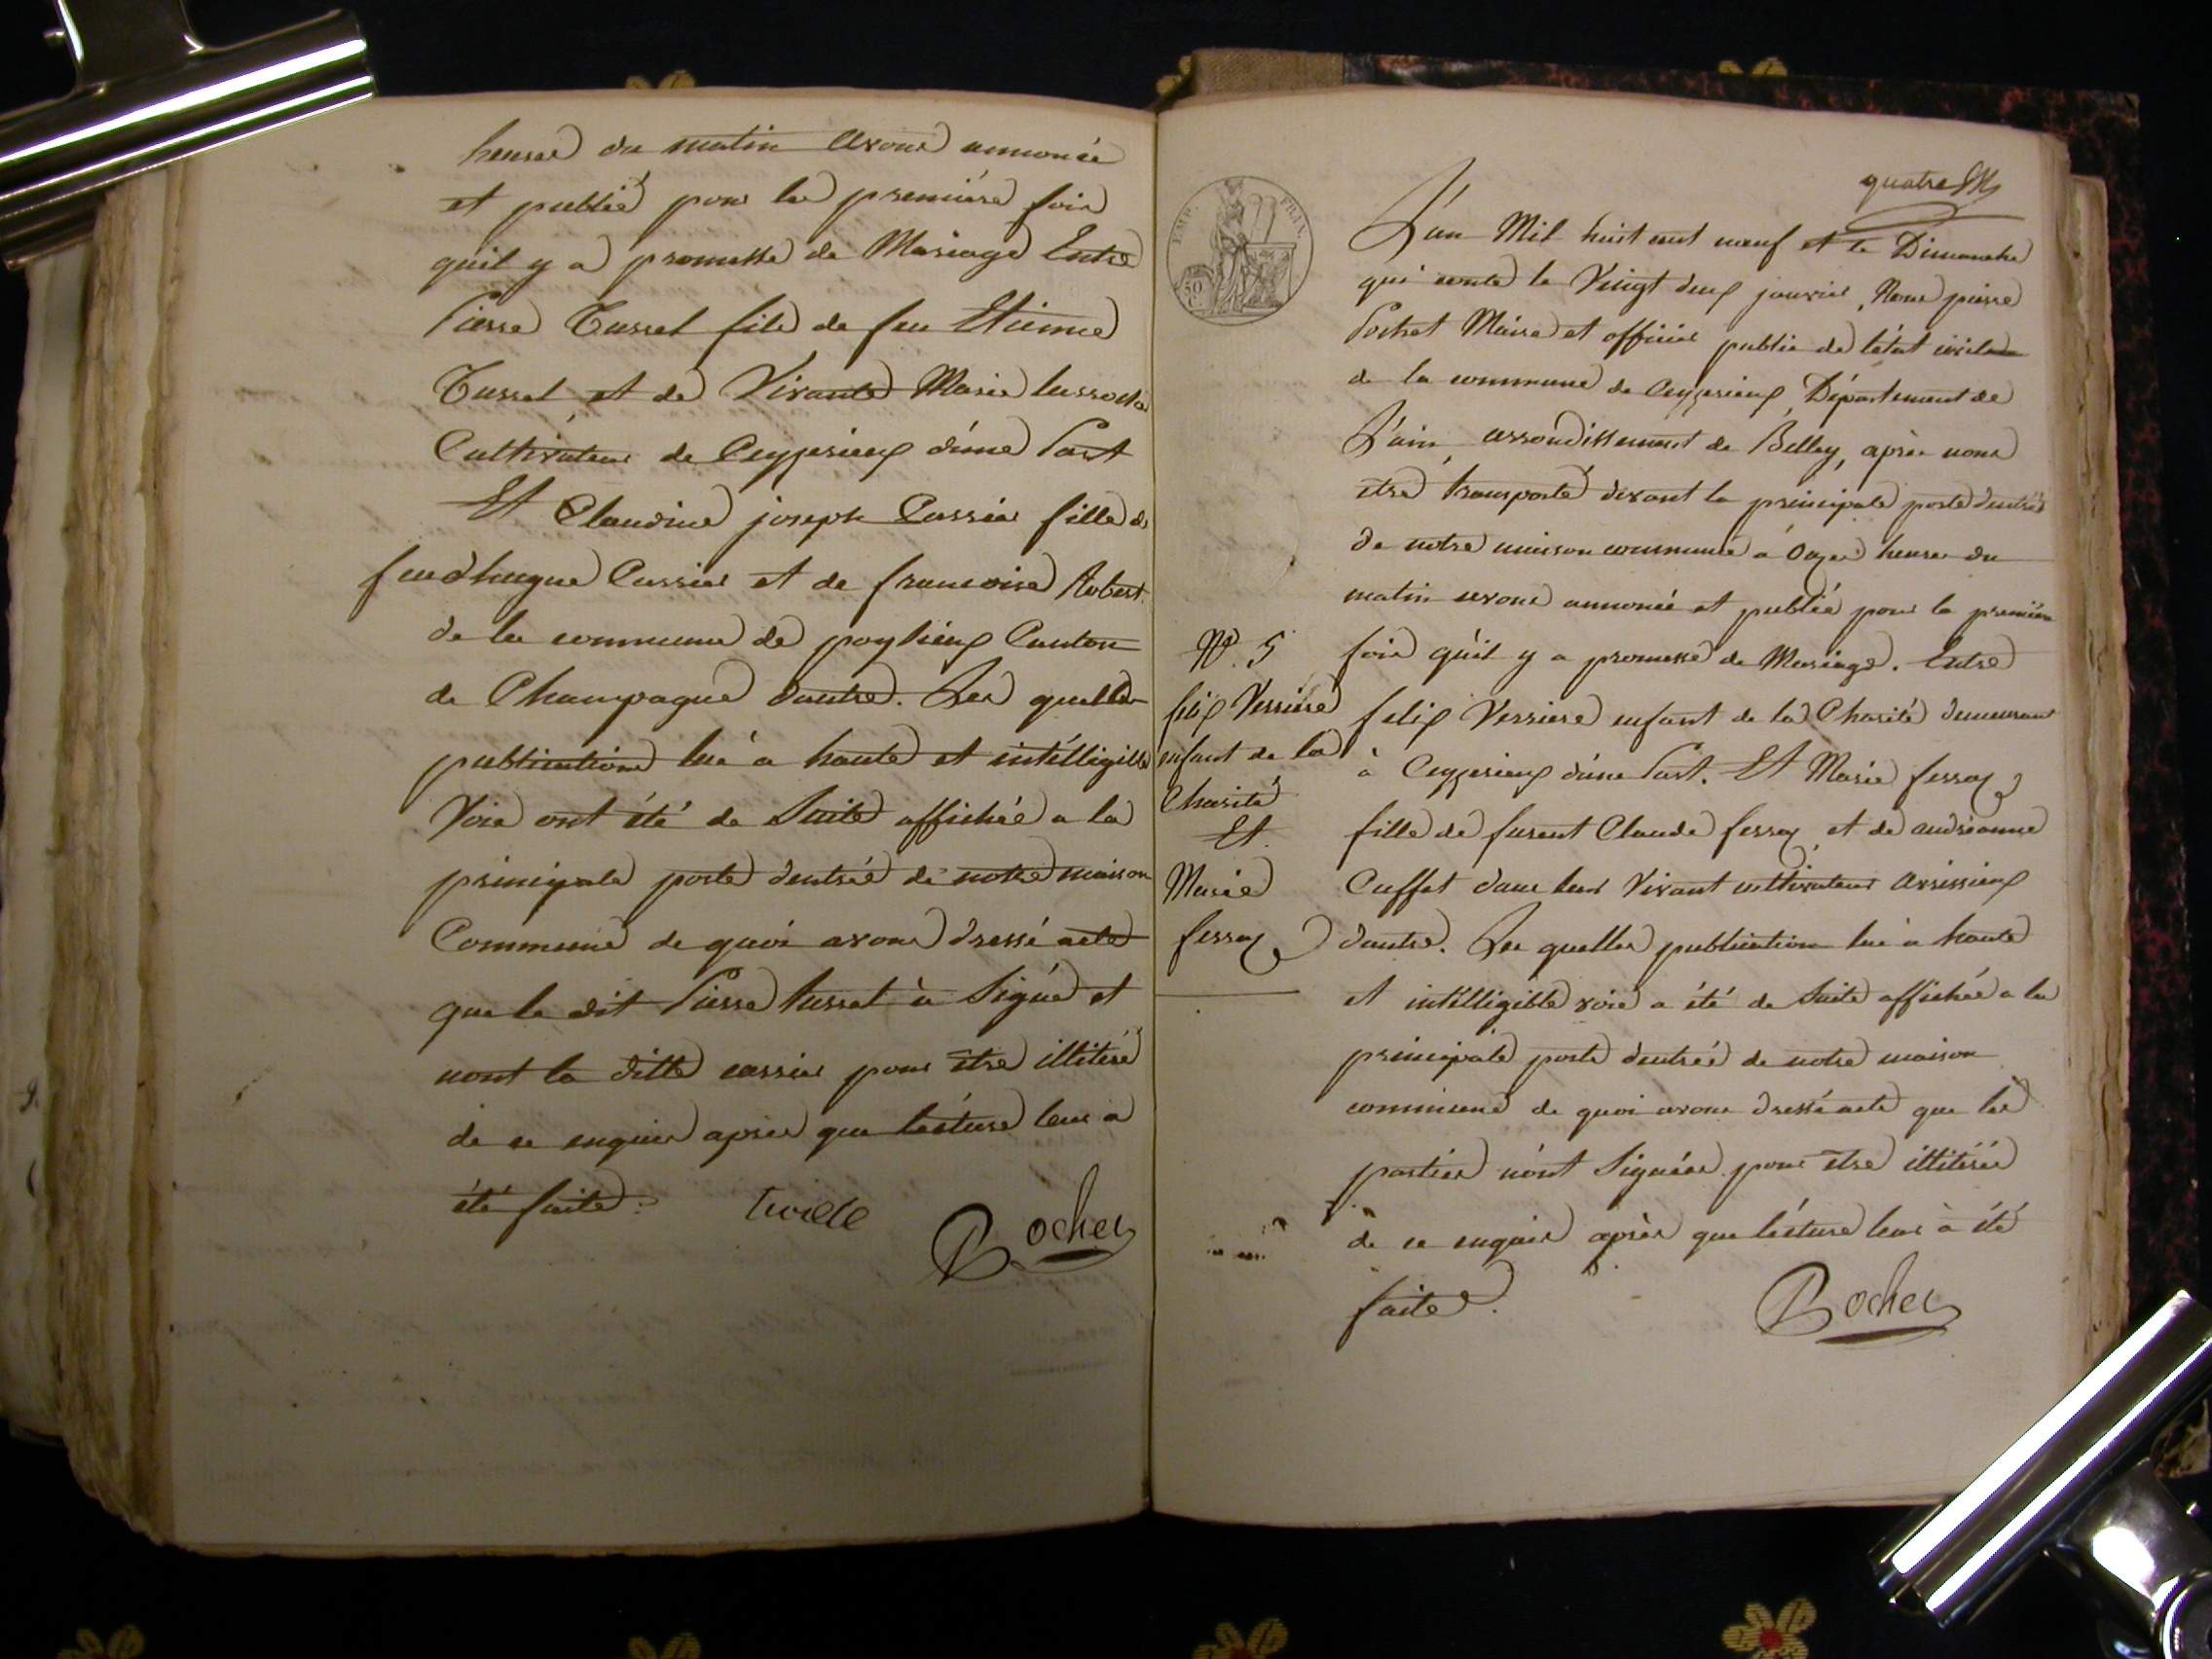 heures du matin avons annoncé
et publié pour la première fois
quil y a promesse de Mariage Entre
Pierre Tusset fils de feu Etienne
Tusset et de Vivante Marie
Cultivateur de Ceyzerieux d'une Part
Et Claudine joseph Cassier fille de
feu d'hugue Cassier et de francoise Robert
de la commune de Canton
de Champagne dautre. Les quelles
publications lue a haute et intélligible
Voix ont été de Suite affichée a la
principale porte dentrée de notre maison
Commune de quoi avons dressé acte
que le dit Pierre tusset à Signé et
nont la ditte cassier pour être illiteré
de ce enquis apres que lecture leur a
été faite.
Bochet
quatre
L'an Mil huit cent neuf et le Dimanche
qui conte le Vingt deux janvier, Nous pierre
Bochet Maire et officier public de l'état civil
de la commune de Ceyzerieux Département de
L'ain, arrondissement de Belley, après nous
etre transporté devant la principale porte dentrée
de notre maison commune à Onze heures du
matin avons annoncé et publié pour la première
N°. 5
fois qu'il y a promesse de Mariage. Entre
felix Verriere
felix Verriere enfant de la Charité demeurant
enfant de la
à Ceyzerieux d'une Part. Et Marie ferroz
Charité
Et
fille de furent Claude ferroz, et de andréanne
Marie
Cuffet dans leur Vivant cultivateur
ferroz
dautre. Les quelles publication lue a haute
et intélligible voix a été de Suite affichée a la
principale porte dentrée de notre maison
commune de quoi avons dressé acte que les
parties n'ont Signées pour etre illiterée
de ce enquis après que lécture leur à été
faite.
Bochet
EMP. FRAN.
50 C.